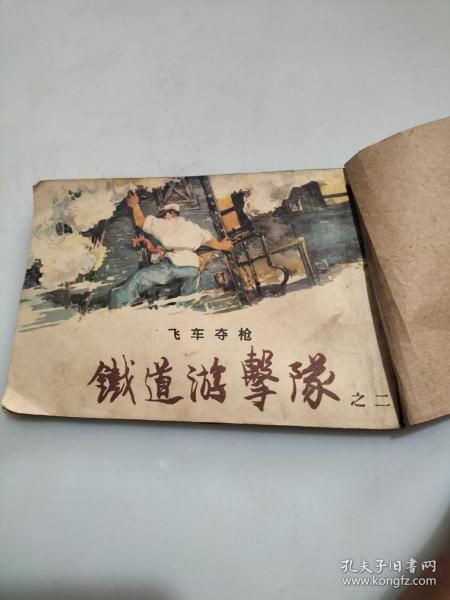 飞车夺枪
鐵道游擊隊 之二
孔夫子旧书网
www.kongfz.com